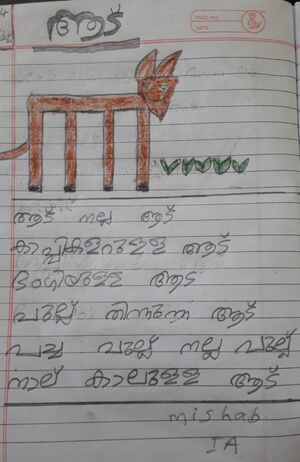 ആട്
PAGE NO.
DATE:
ആട് നല്ല ആട്
കാപ്പികളറുള്ള ആട്
ഭംഗിയുള്ള ആട്
പുല്ല് തിന്നുന്ന ആട്
പച്ച പുല്ല് നല്ല പുല്ല്
നാല് കാലുള്ള ആട്
mishab
IA